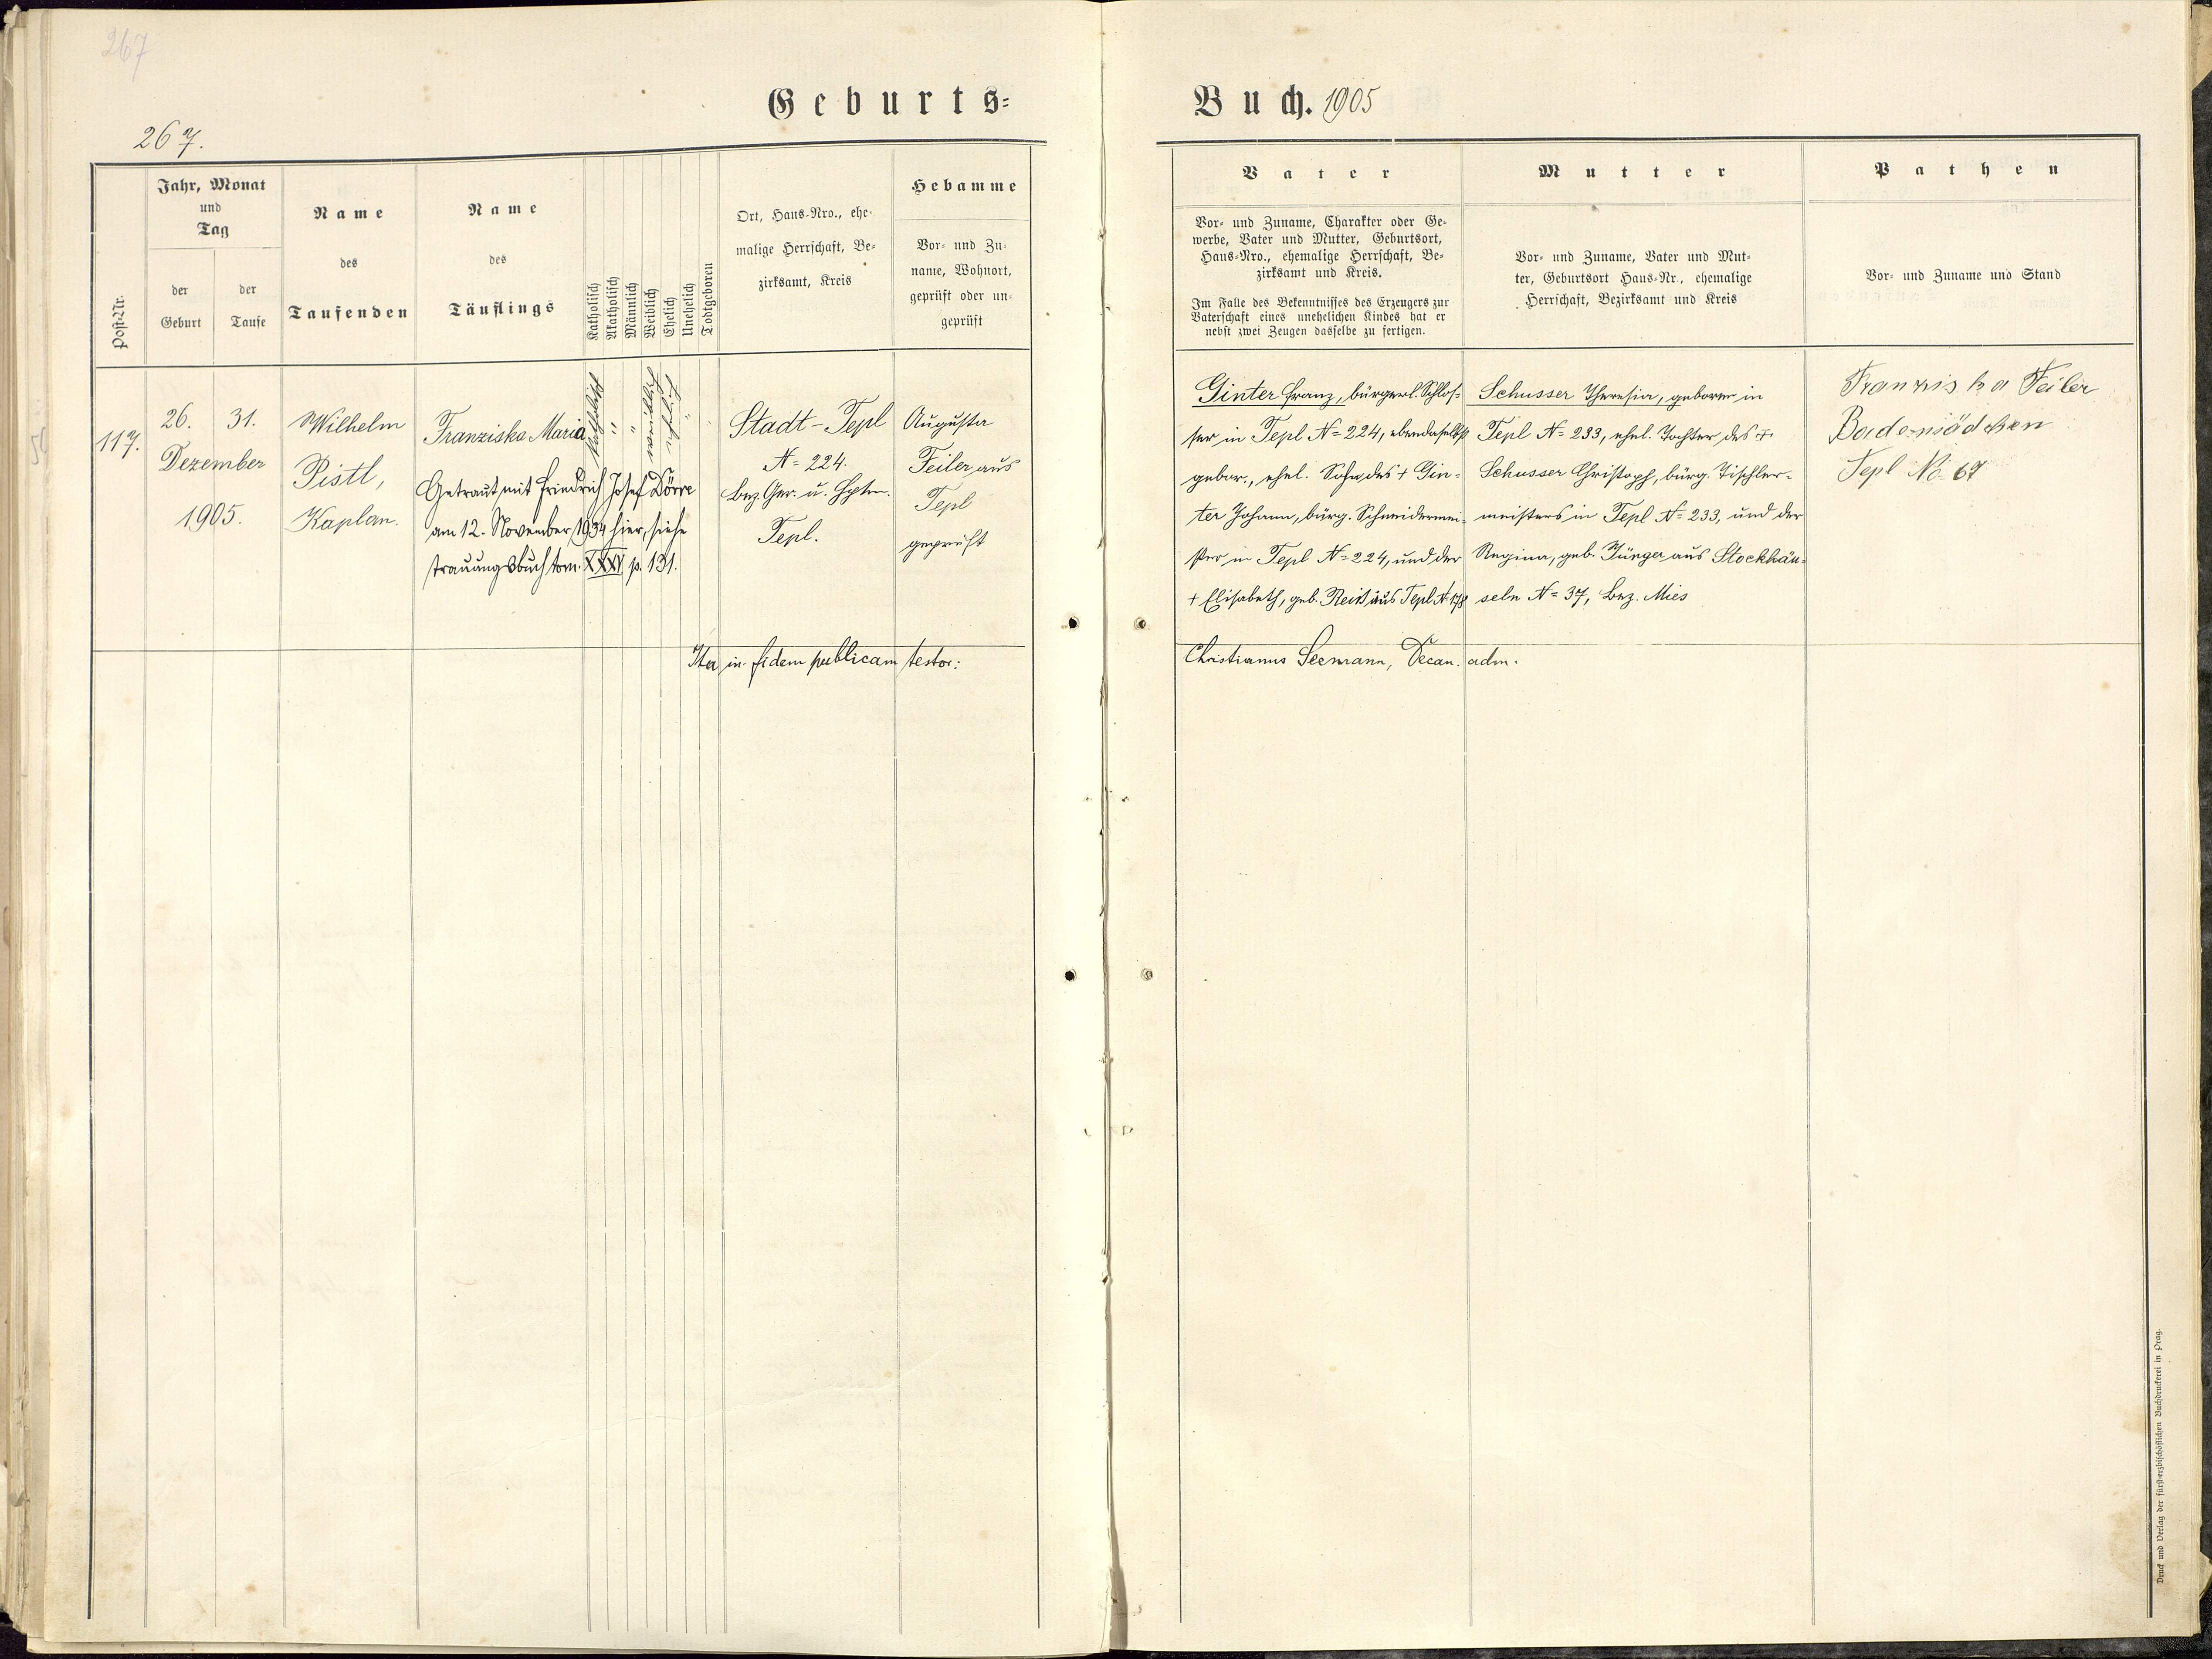 267
Geburts-
Buch. 1905
267.
Post-Nr.
Jahr, Monat
und
Tag
der
Geburt
der
Taufe
Name
des
Taufenden
Name
des
Täuflings
Katholisch
Akatholisch
Männlich
Weiblich
Ehelich
Unehelich
Todtgeboren
Ort, Haus-Nro., ehe-
malige Herrschaft, Be-
zirksamt, Kreis
Hebamme
Vor- und Zu-
name, Wohnort,
geprüft oder un-
geprüft
Vater
Vor- und Zuname, Charakter oder Ge-
werbe, Vater und Mutter, Geburtsort,
Haus-Nro., ehemalige Herrschaft, Be-
zirksamt und Kreis.
Im Falle des Bekenntnisses des Erzeugers zur
Vaterschaft eines unehelichen Kindes hat er
nebst zwei Zeugen dasselbe zu fertigen.
Mutter
Vor- und Zuname, Vater und Mut-
ter, Geburtsort Haus-Nr., ehemalige
Herrschaft, Bezirksamt und Kreis
Pathen
Vor- und Zuname und Stand
117.
26. 31.
Dezember
1905.
Wilhelm
Pistl,
Kaplan.
Franziska Maria
Getraut mit Friedrich Josef Dörre
am 12. November 1934 hier, siehe
Trauungsbuch tom. XXXV p. 131.
katholisch
"
"
weiblich
ehelich
"
Stadt-Tepl
N= 224.
Bez. Ger. u. Hptm.
Tepl.
Augusta
Feiler aus
Tepl
geprüft
Ginter Franz, bürgerl. Schlos-
ser in Tepl N= 224, ebendaselbst
gebor., ehel. Sohn des + Gin-
ter Johann, bürg. Schneidermei-
ster in Tepl N= 224, und der
+ Elisabeth, geb. Reiß aus Tepl N= 178
Schusser Theresia, geboren in
Tepl N= 233, ehel. Tochter des +
Schusser Christoph, bürg. Tischler-
meisters in Tepl N= 233, und der
Regina, geb. Jünger aus Stockhäu-
seln N= 37, Bez. Mies
Franziska Feiler
Bademädchen
Tepl No. 67
Ita in fidem publicam testor:
Christianus Seemann, Decan. adm.
Druck und Verlag der fürst-erzbischöflichen Buchdruckerei in Prag.